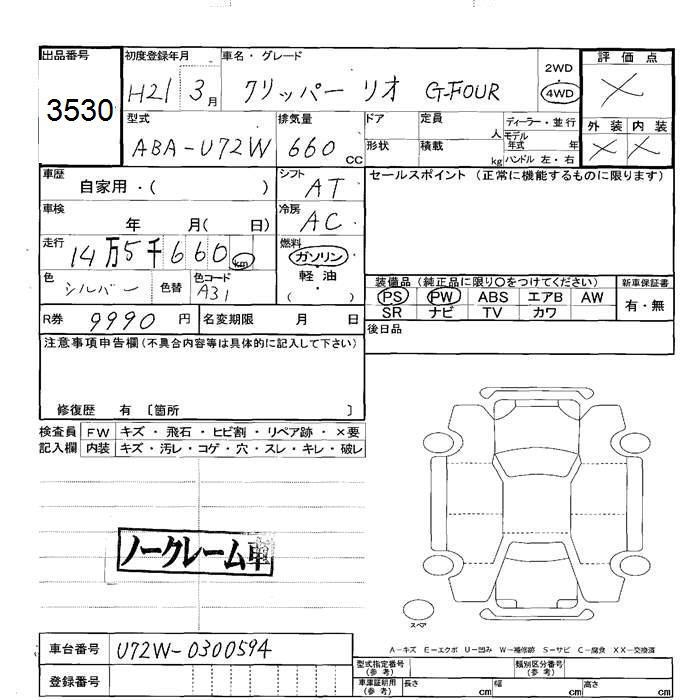 出品番号
3530
初度登録年月
H21 3月
車名・グレード
クリッパー リオ G-FOUR
2WD
4WD
評価点
×
型式
ABA-U72W
排気量
660cc
ドア
形状
定員 人
積載 kg
ディーラー・並行
モデル年式 年
ハンドル 左・右
外装 内装
× ×
車歴
自家用・( )
シフト
AT
セールスポイント (正常に機能するものに限ります)
車検
年 月( 日)
冷房
AC
走行
14万5千660km
燃料
ガソリン・
軽油
( )
色
シルバー
色替
色コード
A31
装備品 (純正品に限り○をつけてください)
PS PW ABS エアB AW
SR ナビ TV カワ
新車保証書
有・無
R券 9990円
名変期限 月 日
後日品
注意事項申告欄 (不具合内容等は具体的に記入して下さい)
修復歴 有 〔箇所 〕
検査員記入欄
FW キズ・飛石・ヒビ割・リペア跡・×要
内装 キズ・汚レ・コゲ・穴・スレ・キレ・破レ
ノークレーム車
スペア
A-キズ E-エクボ U-凹み W-補修跡 S-サビ C-腐食 XX-交換済
車台番号 U72W-0300594
登録番号
型式指定番号(参考)
類別区分番号(参考)
車庫証明用(参考) 長さ cm 幅 cm 高さ cm